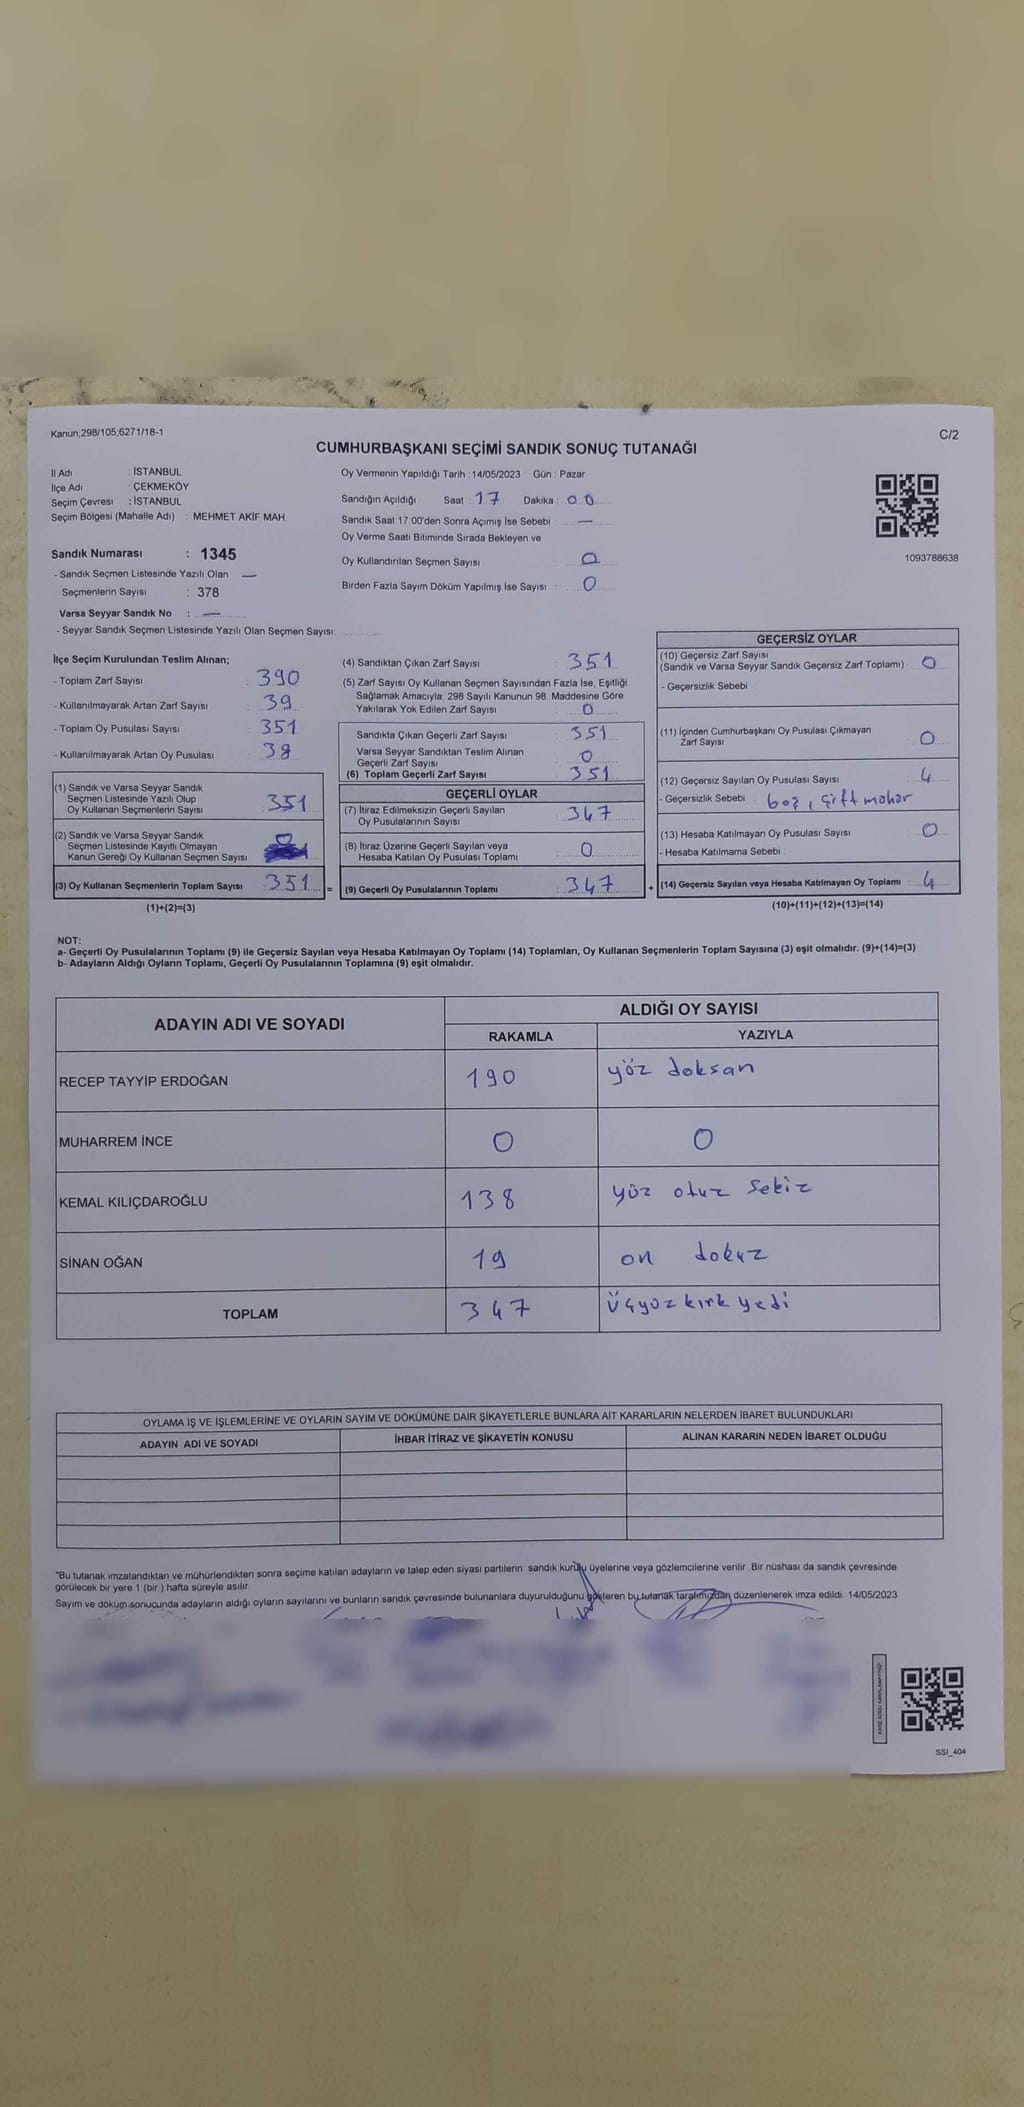 Kanun;298/105;6271/18-1
C/2
CUMHURBAŞKANI SEÇİMİ SANDIK SONUÇ TUTANAĞI
İl Adı : İSTANBUL
İlçe Adı : ÇEKMEKÖY
Seçim Çevresi : İSTANBUL
Seçim Bölgesi (Mahalle Adı) : MEHMET AKİF MAH.
Sandık Numarası : 1345
- Sandık Seçmen Listesinde Yazılı Olan —
Seçmenlerin Sayısı : 378
Varsa Seyyar Sandık No : —
- Seyyar Sandık Seçmen Listesinde Yazılı Olan Seçmen Sayısı:
Oy Vermenin Yapıldığı Tarih : 14/05/2023 Gün : Pazar
Sandığın Açıldığı Saat : 17 Dakika : 00
Sandık Saat 17.00'den Sonra Açımış İse Sebebi : —
Oy Verme Saati Bitiminde Sırada Bekleyen ve
Oy Kullandırılan Seçmen Sayısı : 0
Birden Fazla Sayım Döküm Yapılmış İse Sayısı : 0
1093788638
İlçe Seçim Kurulundan Teslim Alınan;
- Toplam Zarf Sayısı : 390
- Kullanılmayarak Artan Zarf Sayısı : 39
- Toplam Oy Pusulası Sayısı : 351
- Kullanılmayarak Artan Oy Pusulası : 39
(1) Sandık ve Varsa Seyyar Sandık
Seçmen Listesinde Yazılı Olup
Oy Kullanan Seçmenlerin Sayısı : 351
(2) Sandık ve Varsa Seyyar Sandık
Seçmen Listesinde Kayıtlı Olmayan
Kanun Gereği Oy Kullanan Seçmen Sayısı : 0
(3) Oy Kullanan Seçmenlerin Toplam Sayısı : 351 =
(1)+(2)=(3)
(4) Sandıktan Çıkan Zarf Sayısı : 351
(5) Zarf Sayısı Oy Kullanan Seçmen Sayısından Fazla İse, Eşitliği
Sağlamak Amacıyla, 298 Sayılı Kanunun 98. Maddesine Göre
Yakılarak Yok Edilen Zarf Sayısı : 0
Sandıkta Çıkan Geçerli Zarf Sayısı : 351
Varsa Seyyar Sandıktan Teslim Alınan
Geçerli Zarf Sayısı : 0
(6) Toplam Geçerli Zarf Sayısı : 351
GEÇERLİ OYLAR
(7) İtiraz Edilmeksizin Geçerli Sayılan
Oy Pusulalarının Sayısı : 347
(8) İtiraz Üzerine Geçerli Sayılan veya
Hesaba Katılan Oy Pusulası Toplamı : 0
(9) Geçerli Oy Pusulalarının Toplamı : 347 +
GEÇERSİZ OYLAR
(10) Geçersiz Zarf Sayısı
(Sandık ve Varsa Seyyar Sandık Geçersiz Zarf Toplamı) : 0
- Geçersizlik Sebebi :
(11) İçinden Cumhurbaşkanı Oy Pusulası Çıkmayan
Zarf Sayısı : 0
(12) Geçersiz Sayılan Oy Pusulası Sayısı : 4
- Geçersizlik Sebebi : boş, çift mühür
(13) Hesaba Katılmayan Oy Pusulası Sayısı : 0
- Hesaba Katılmama Sebebi :
(14) Geçersiz Sayılan veya Hesaba Katılmayan Oy Toplamı : 4
(10)+(11)+(12)+(13)=(14)
NOT:
a- Geçerli Oy Pusulalarının Toplamı (9) ile Geçersiz Sayılan veya Hesaba Katılmayan Oy Toplamı (14) Toplamları, Oy Kullanan Seçmenlerin Toplam Sayısına (3) eşit olmalıdır. (9)+(14)=(3)
b- Adayların Aldığı Oyların Toplamı, Geçerli Oy Pusulalarının Toplamına (9) eşit olmalıdır.
ADAYIN ADI VE SOYADI
ALDIĞI OY SAYISI
RAKAMLA YAZIYLA
RECEP TAYYİP ERDOĞAN 190 yöz doksan
MUHARREM İNCE 0 0
KEMAL KILIÇDAROĞLU 138 yüz otuz sekiz
SİNAN OĞAN 19 on dokuz
TOPLAM 347 Üçyüz kırk yedi
OYLAMA İŞ VE İŞLEMLERİNE VE OYLARIN SAYIM VE DÖKÜMÜNE DAİR ŞİKAYETLERLE BUNLARA AİT KARARLARIN NELERDEN İBARET BULUNDUKLARI
ADAYIN ADI VE SOYADI İHBAR İTİRAZ VE ŞİKAYETİN KONUSU ALINAN KARARIN NEDEN İBARET OLDUĞU
*Bu tutanak imzalandıktan ve mühürlendikten sonra seçime katılan adayların ve talep eden siyasi partilerin sandık kurulu üyelerine veya gözlemcilerine verilir. Bir nüshası da sandık çevresinde
görülecek bir yere 1 (bir ) hafta süreyle asılır.
Sayım ve döküm sonucunda adayların aldığı oyların sayılarını ve bunların sandık çevresinde bulunanlara duyurulduğunu gösteren bu tutanak tarafımızdan düzenlenerek imza edildi. 14/05/2023
SSI_404